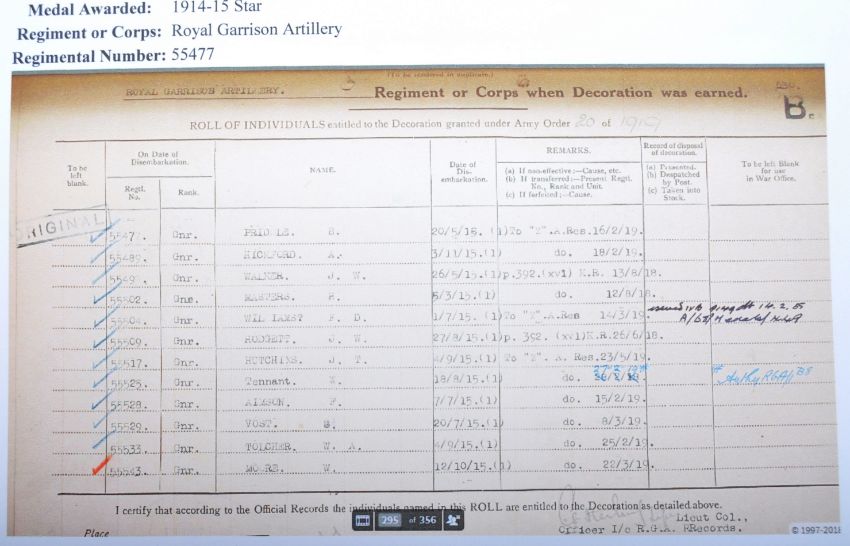 Medal Awarded: 1914-15 Star
Regiment or Corps: Royal Garrison Artillery
Regimental Number: 55477
(To be rendered in duplicate.)
ROYAL GARRISON ARTILLERY. Regiment or Corps when Decoration was earned.
B
ROLL OF INDIVIDUALS entitled to the Decoration granted under Army Order 20 of 1919
To be left blank.
On Date of Disembarkation.
Regtl. No.
Rank.
NAME.
Date of Dis-embarkation.
REMARKS.
(a) If non-effective:—Cause, etc.
(b) If transferred:—Present Regtl. No., Rank and Unit.
(c) If forfeited:—Cause.
Record of disposal of decoration.
(a) Presented.
(b) Despatched by Post.
(c) Taken into Stock.
To be left Blank for use in War Office.
ORIGINAL
5547 . Gnr. 20/5/15. (1)To "Z".A.Res.16/2/19.
55489. Gnr. A. 3/11/15.(1) do. 18/2/19.
Gnr. WALKER. J. W. 26/5/15.(1)p.392.(xvi) K.R. 13/8/18.
55502. Gnr. MASTERS. 5/3/15.(1) do. 12/8/18.
55504. Gnr. F. D. 1/7/15. (1)To "Z".A.Res 14/3/19.
55509. Gnr. J. W. 27/8/15.(1)p. 392. (xvi)K.R.26/6/18.
55517. Gnr. HUTCHINS. J. T. 4/9/15.(1) To "Z". A. Res.23/5/19.
55525. Gnr. Tennant. 18/8/15.(1) do.
55528. Gnr. F. 7/7/15.(1) do. 15/2/19.
55529. Gnr. 20/7/15.(1) do. 8/3/19.
55533. Gnr. TOLCHER. W. A. 4/9/15.(1) do. 25/2/19.
55543. Gnr. MOORE. W. 12/10/15.(1) do. 22/3/19.
I certify that according to the Official Records the individuals named in this ROLL are entitled to the Decoration as detailed above.
295 of 356
Lieut Col.,
Officer I/c R.G.A. Records.
Place
© 1997-2018